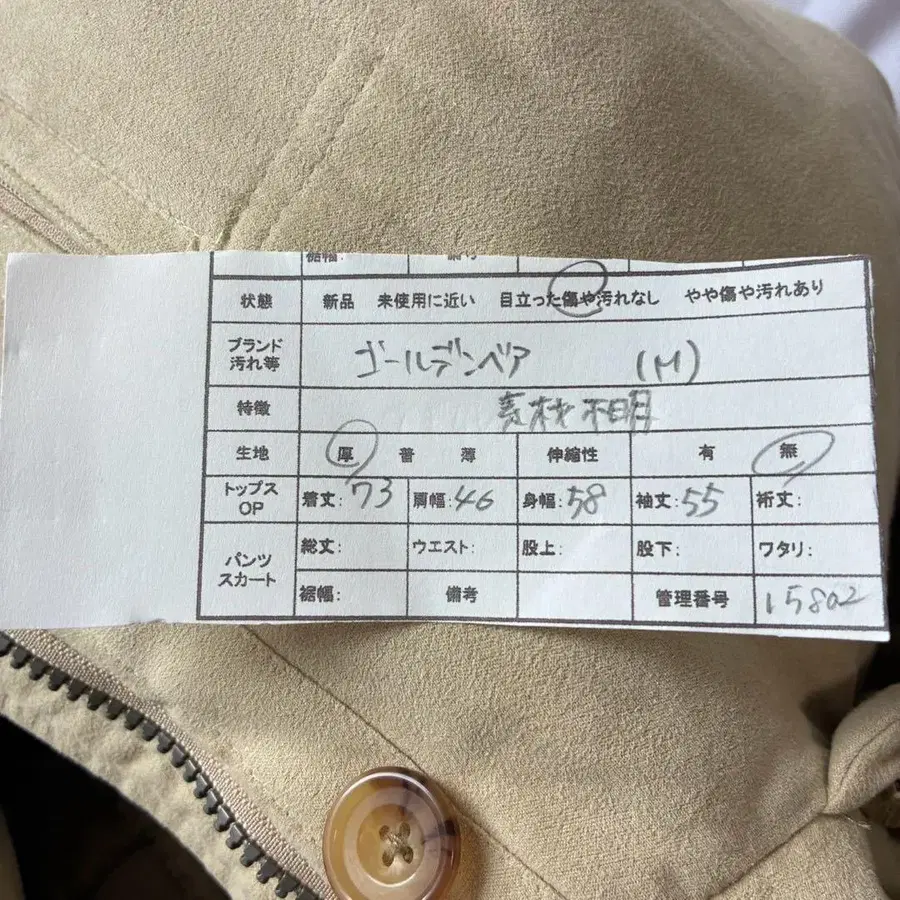 状態 新品 未使用に近い 目立った傷や汚れなし やや傷や汚れあり
ブランド
汚れ等 ゴールデンベア (M)
特徴 素材不明
生地 厚 普 薄 伸縮性 有 無
トップス
OP 着丈:73 肩幅:46 身幅:58 袖丈:55 裄丈:
パンツ
スカート 総丈: ウエスト: 股上: 股下: ワタリ:
裾幅: 備考 管理番号 15802